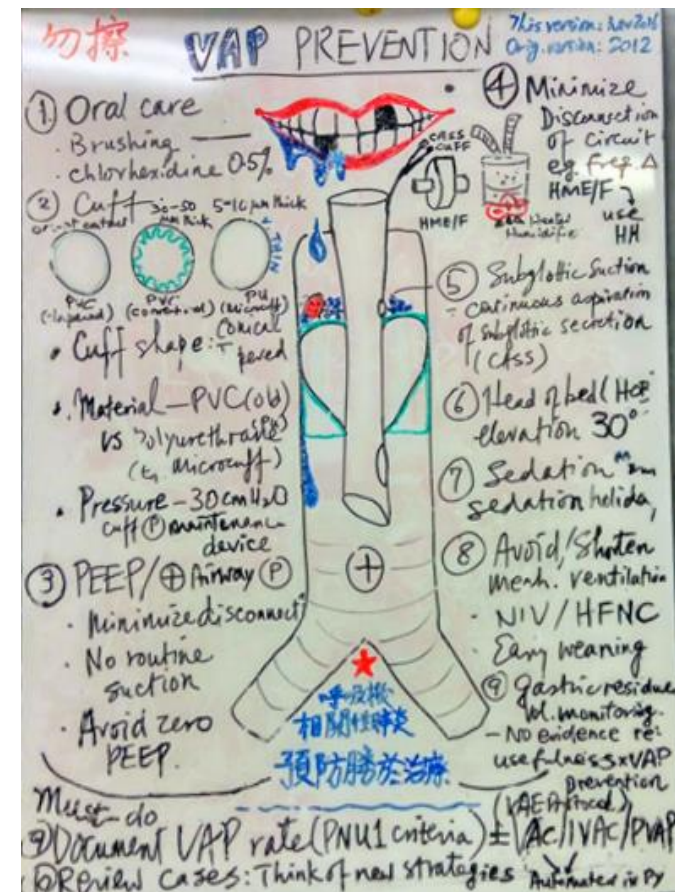 勿擦
VAP PREVENTION
This version: Nov 2016
Orig. version: 2012
① Oral care
· Brushing
· chlorhexidine 0.5%
② Cuff
30-50 μm thick
5-10 μm thick
THIN
PVC
PVC
PU
(microcuff)
· Cuff shape: Conical
· Material - PVC (old)
vs Polyurethrane
microcuff)
· Pressure - 30 cmH₂O
cuff Ⓟ maintenance
device
③ PEEP/⊕ Airway Ⓟ
· Minimize disconnect
· No routine
suction
· Avoid zero
PEEP.
CASS
CUFF
HME/F
Heated
④ Minimize
Disconnection
of circuit
eg. freq. Δ
HME/F
use
HH
⑤ Subglottic Suction
- continuous aspiration
of subglottic secretion
(CASS)
⑥ Head of bed (HOB
elevation 30°
⑦ Sedation
sedation holiday
⑧ Avoid/Shorten
mech. ventilation
· NIV/HFNC
· Early weaning
⑨ gastric residue
vol. monitoring.
- No evidence re:
usefulness x VAP
prevention
⊕
★
呼吸機
相關性肺炎
預防勝於治療
Must-do
Document VAP rate (PNU1 criteria) ± VAC/IVAC/PVAP
Review cases: Think of new strategies
Automated in